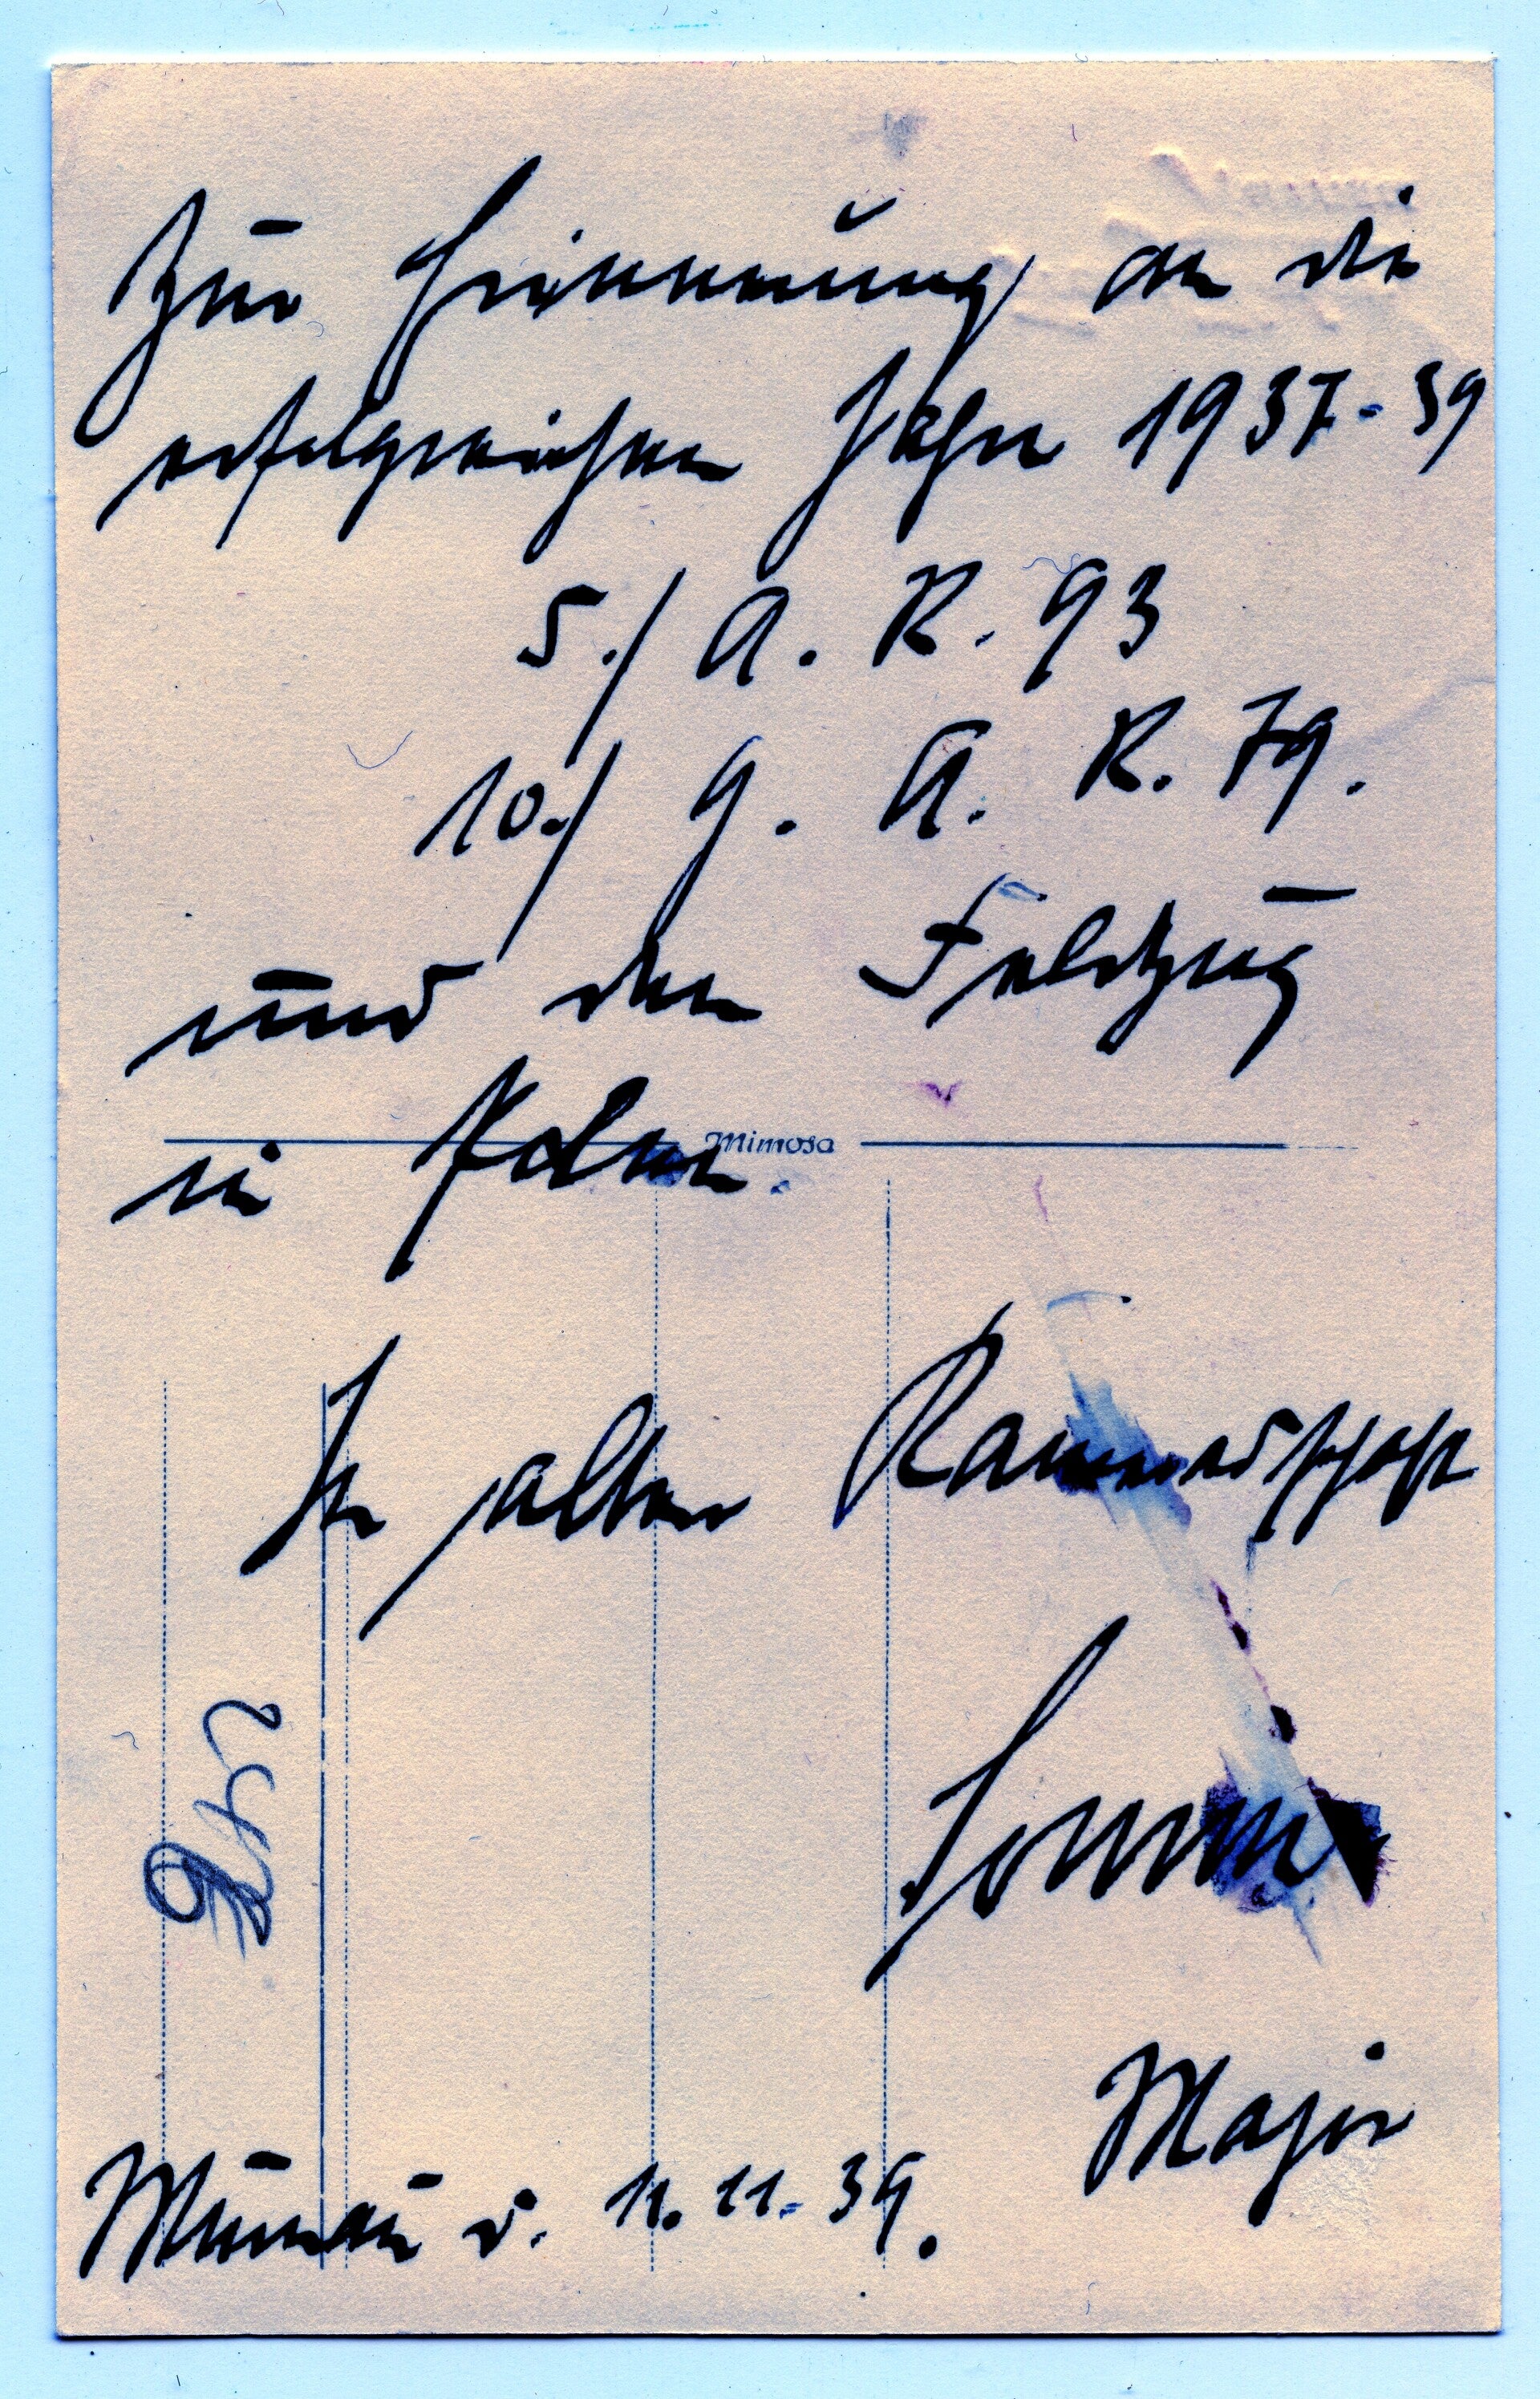 Zur Erinnerung an die
erfolgreichen Jahre 1937-39
5./ A. R. 93
10./ G. A. R. 79.
und den Feldzug
in Polen.
Mimosa
In alter Kameradschaft
Major
Murnau d. 11.11.39.